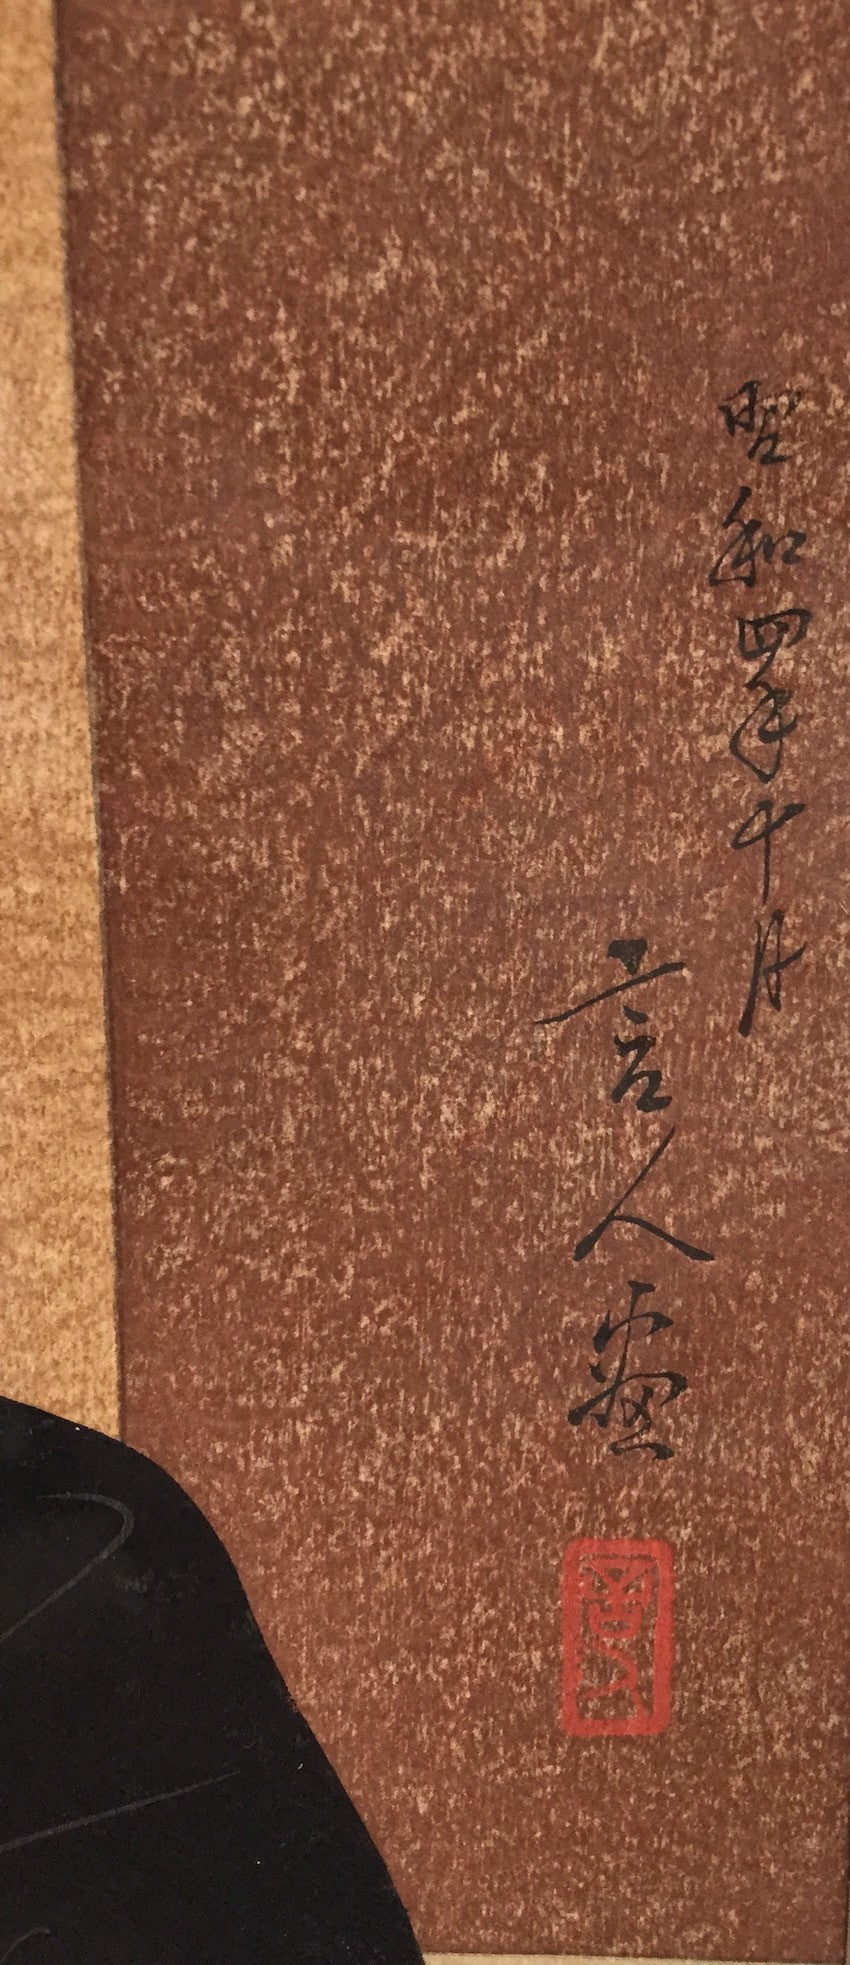 昭和四年十月
言人画
言人